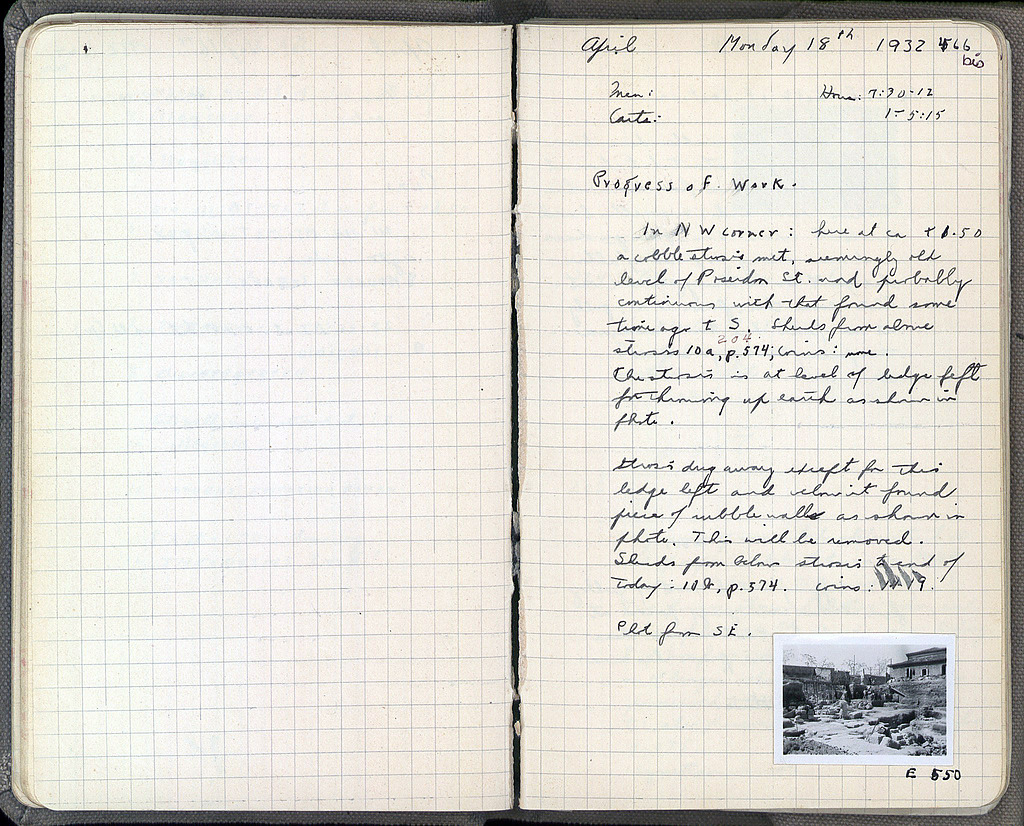 April Monday 18th 1932 566
bis
Men: Hours: 7:30-12
Carts: 1-5:15
Progress of Work.
In NW corner: here at ca +1.50
a cobble strosis met, seemingly old
level of Poseidon St. and probably
continuous with that found some
time ago to S. Sherds from above
204
strosis 10a, p.574; coins: none.
The strosis is at level of ledge left
for throwing up earth as shown in
photo.
Strosis dug away except for this
ledge left and below it found
piece of rubble walls as shown in
photo. This will be removed.
Sherds from below strosis to end of
today: 10b, p.574. coins: 9.
from SE.
E 550